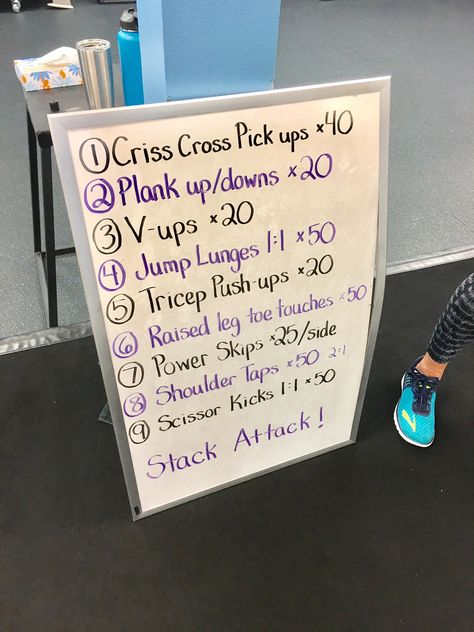 ① Criss Cross Pick ups ×40
② Plank up/downs ×20
③ V-ups ×20
④ Jump Lunges 1:1 ×50
⑤ Tricep Push-ups ×20
⑥ Raised leg toe touches ×50
⑦ Power Skips ×25/side
⑧ Shoulder Taps ×50 2:1
⑨ Scissor Kicks 1:1 ×50
Stack Attack!